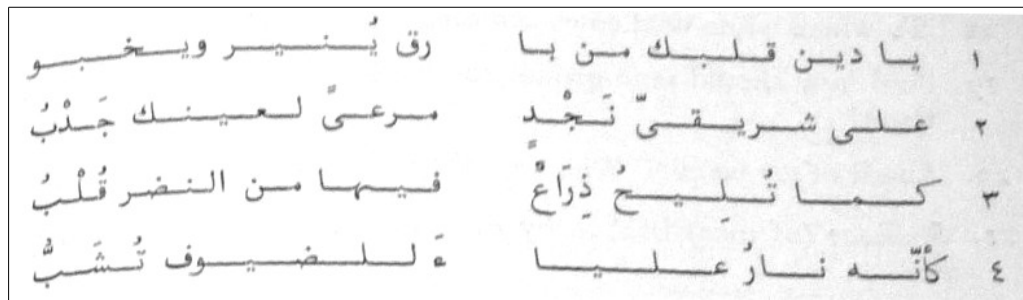 ١ يا دين قلبك من با رق يُنير ويخبو
٢ على شريقىّ نَجْدٍ مرعىً لعينك جَدْبُ
٣ كما تُلِيحُ ذِرَاعٌ فيها من النضر قُلْبُ
٤ كأنّه نارُ عليا ءَ للضيوف تُشَبُّ